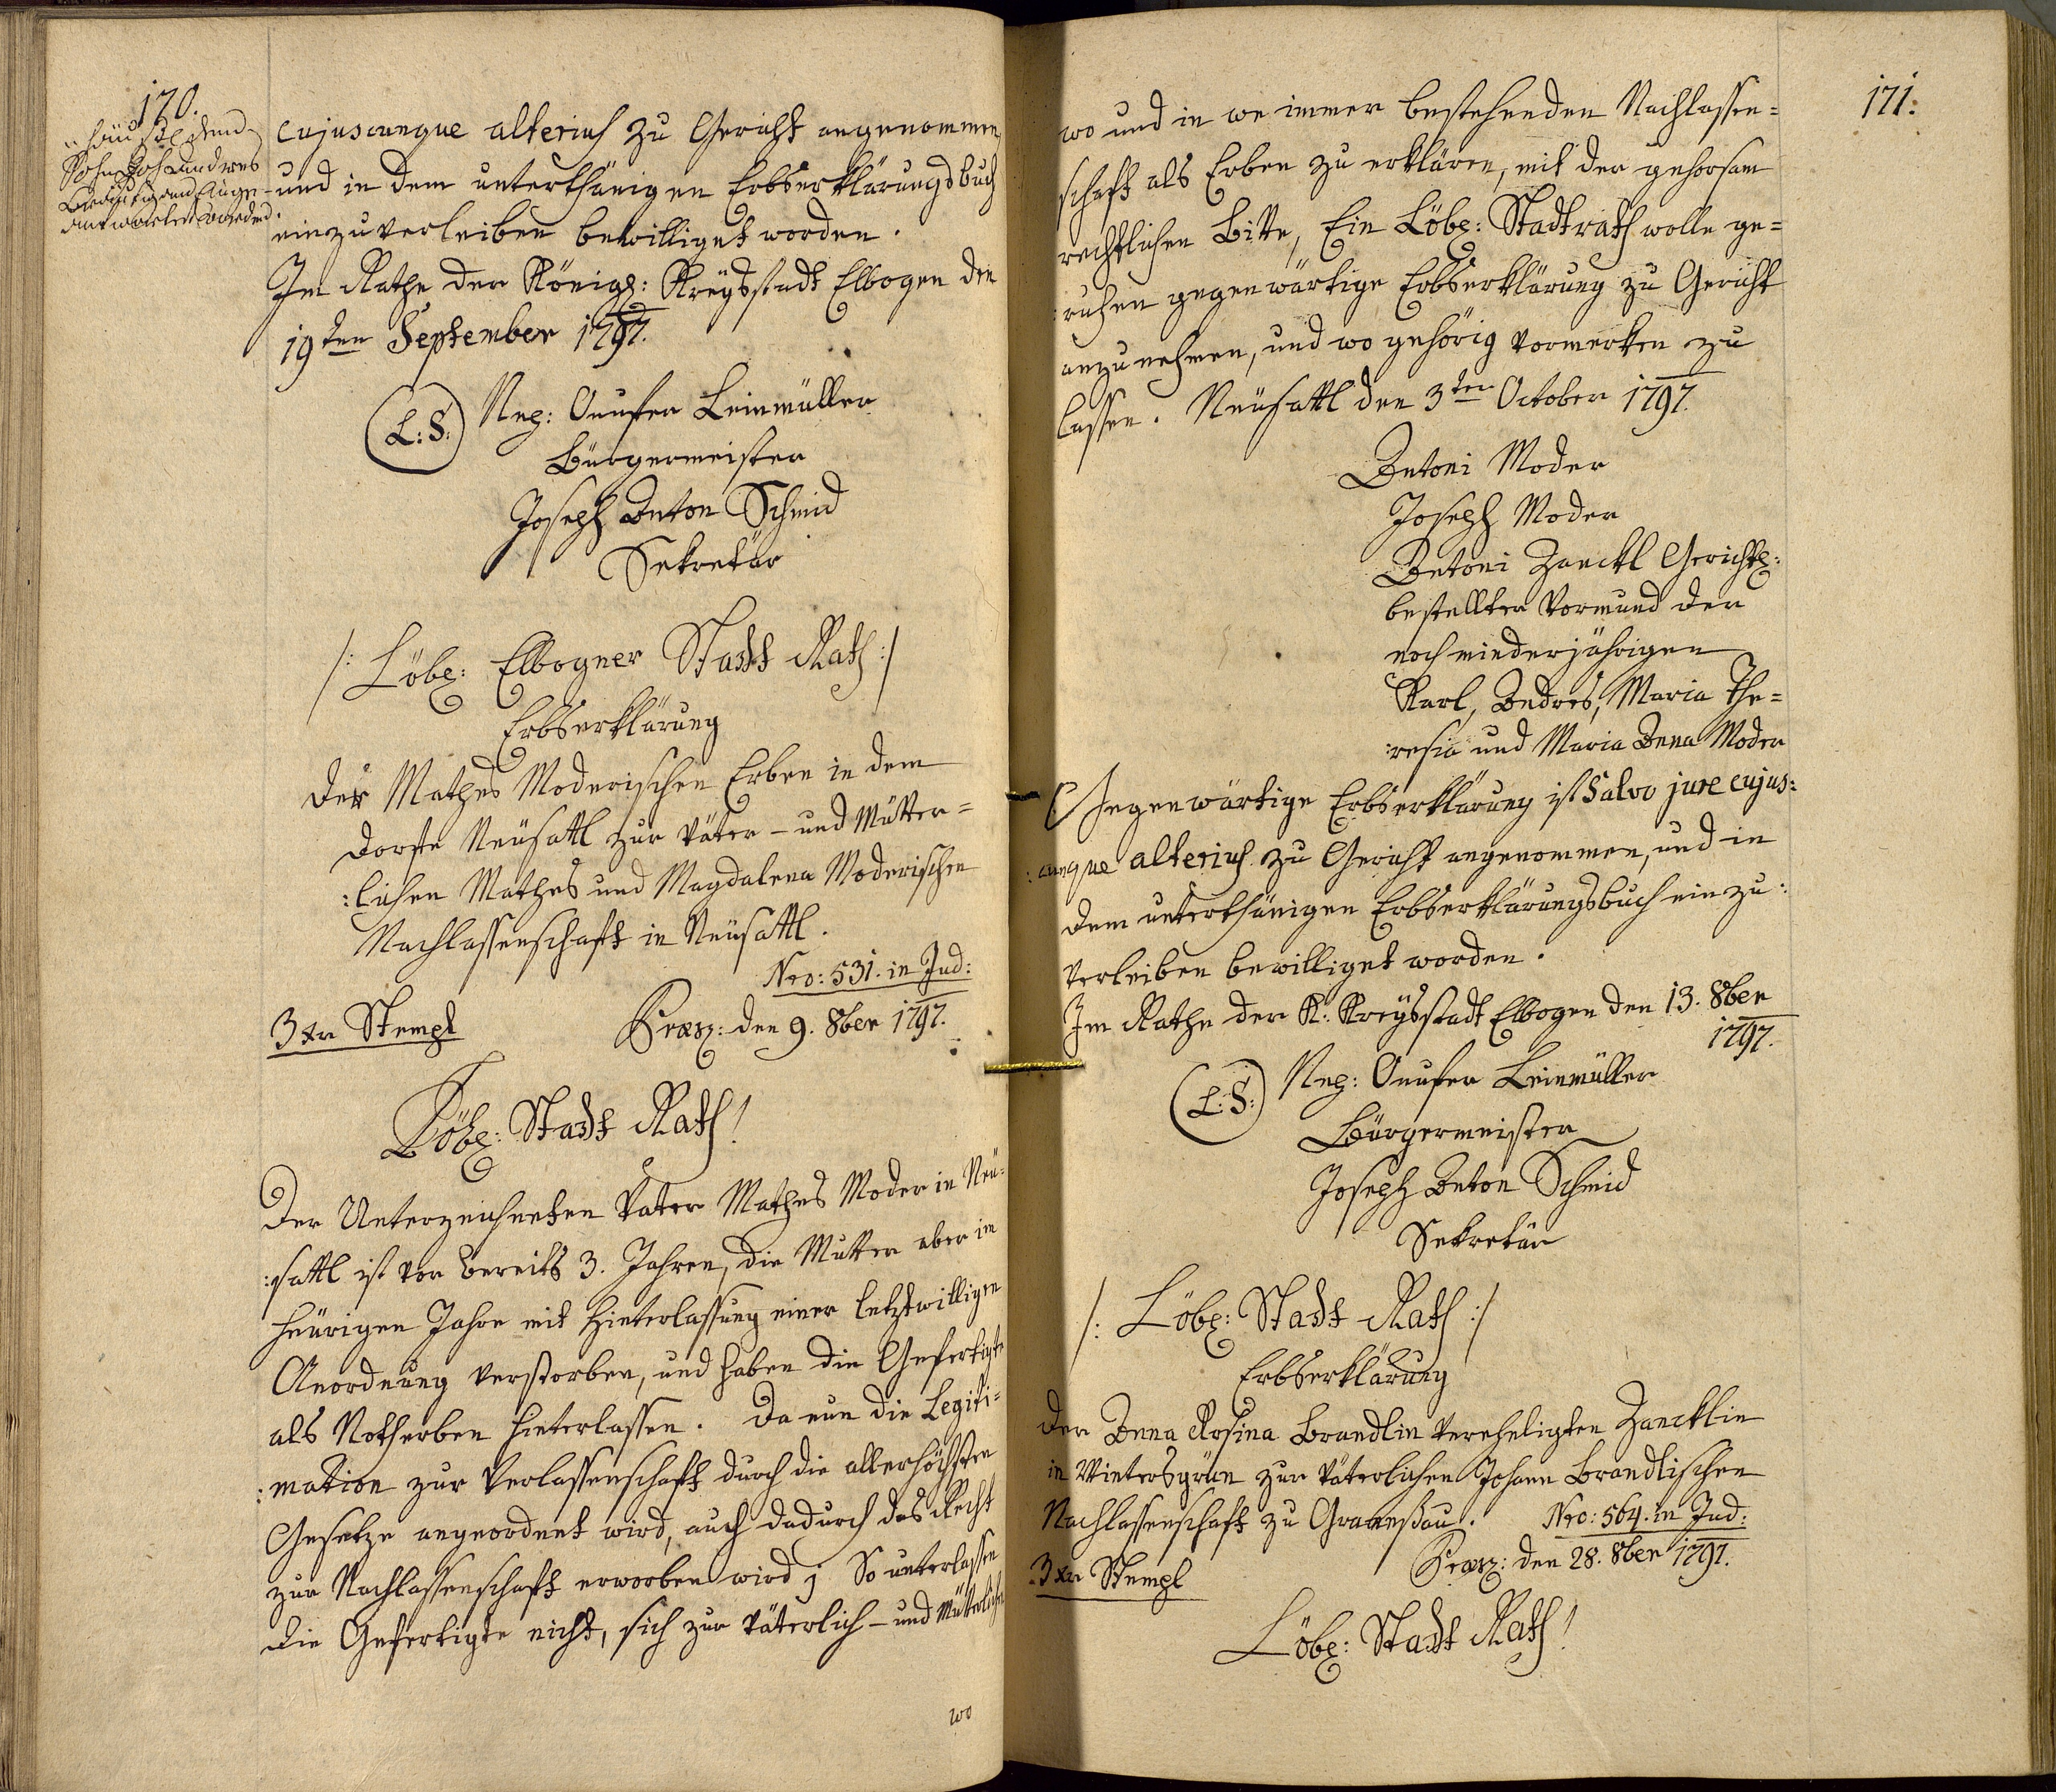 170.
Sohn Joh Andres
cujuscunque alterius zu Gericht angenommen
und in dem unterthänigen Erbserklärungsbuch
einzuverleiben bewilliget worden.
Im Rathe der Königl: Kreysstadt Elbogen den
19ten September 1797.
(L:S:) Nep: Onufer Leinmüller
Bürgermeister
Joseph Anton Schmid
Sekretär
/: Löbl: Elbogner Stadt Rath :/
Erbserklärung
Der Mathes Moderischen Erben in dem
Dorfe Neusattl zur väter- und Mütter=
:lichen Mathes und Magdalena Moderischen
Nachlassenschaft in Neusattl.
Nro: 531. in Jud:
3 xr Stempl Præs: den 9. 8ber 1797.
Löbl: Stadt Rath!
Der Unterzeichneten Vater Mathes Moder in Neu-
:sattl ist vor bereits 3. Jahren, die Mutter aber im
heurigen Jahre mit Hinterlassung einer letztwilligen
Anordnung verstorben, und haben die Gefertigte
als Notherben hinterlassen. Da nun die Legiti=
:mation zur Verlassenschaft durch die allerhöchsten
Gesetze angeordnet wird, auch dadurch das Recht
zur Nachlassenschaft erworben wird; So unterlassen
die Gefertigte nicht, sich zur väterlich- und Mütterlichen
wo
171.
wo und in we immer bestehenden Nachlassen=
schaft als Erben zu erklären, mit der gehorsam
rechtlichen Bitte, Ein Löbl: Stadtrath wolle ge=
:ruhen gegenwärtige Erbserklärung zu Gericht
anzunehmen, und wo gehörig vormerken zu
lassen. Neusattl den 3ten October 1797.
Antoni Moder
Joseph Moder
Antoni Zanckl Gerichtl:
bestellter Vormund der
noch minderjährigen
Karl, Andres, Maria The=
:resia und Maria Anna Moder
Gegenwärtige Erbserklärung ist Salvo jure cujus:
:cunque alterius zu Gericht angenommen, und in
dem unterthänigen Erbserklärungsbuch einzu:
verleiben bewilliget worden.
Im Rathe der K: Kreysstadt Elbogen den 13. 8ber
1797.
(L:S:) Nep: Onufer Leinmüller
Bürgermeister
Joseph Anton Schmid
Sekretär
/: Löbl: Stadt Rath :/
Erbserklärung
Der Anna Rosina Brandlin verehligten Zancklin
in Wintersgrün zur väterlichen Johann Brandlischen
Nachlassenschaft zu Granesau. Nro: 564. in Jud:
3 xr Stempl Præs: den 28. 8ber 1797.
Löbl: Stadt Rath!